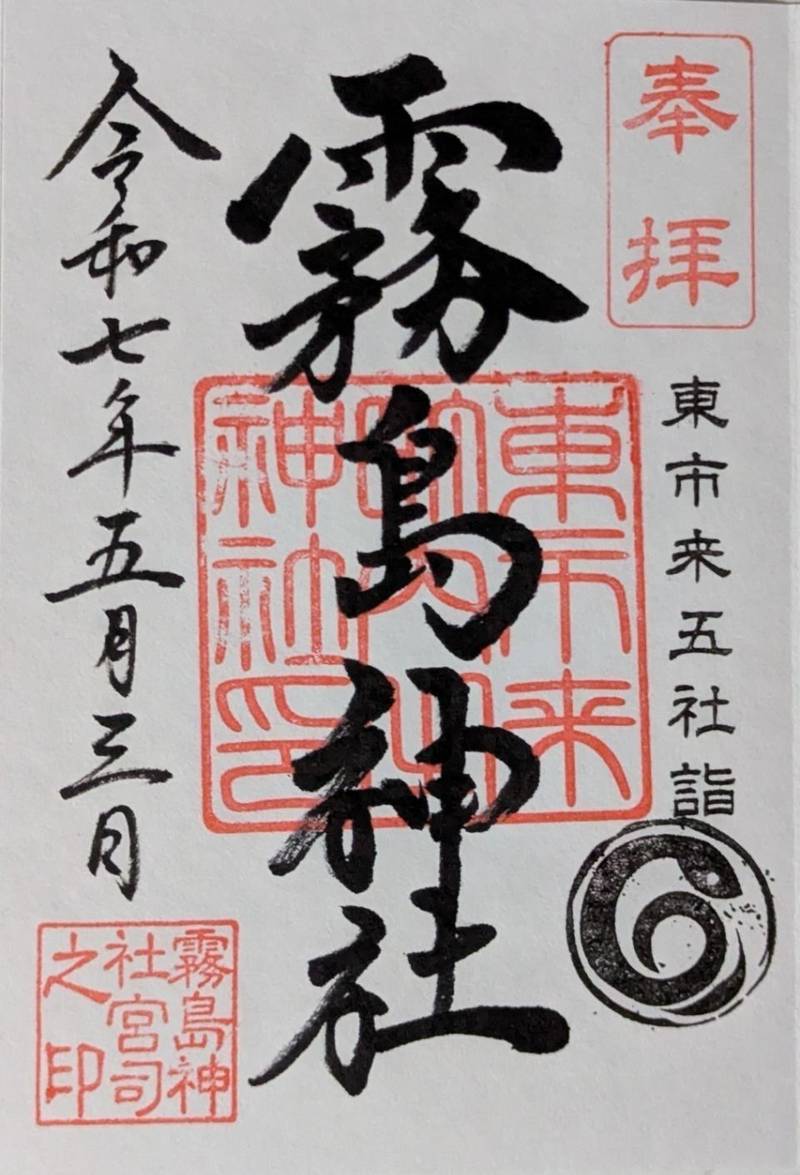 奉拝
東市来五社詣
霧島神社
令和七年五月三日
東市来
神社印
霧島神
社宮司
之印